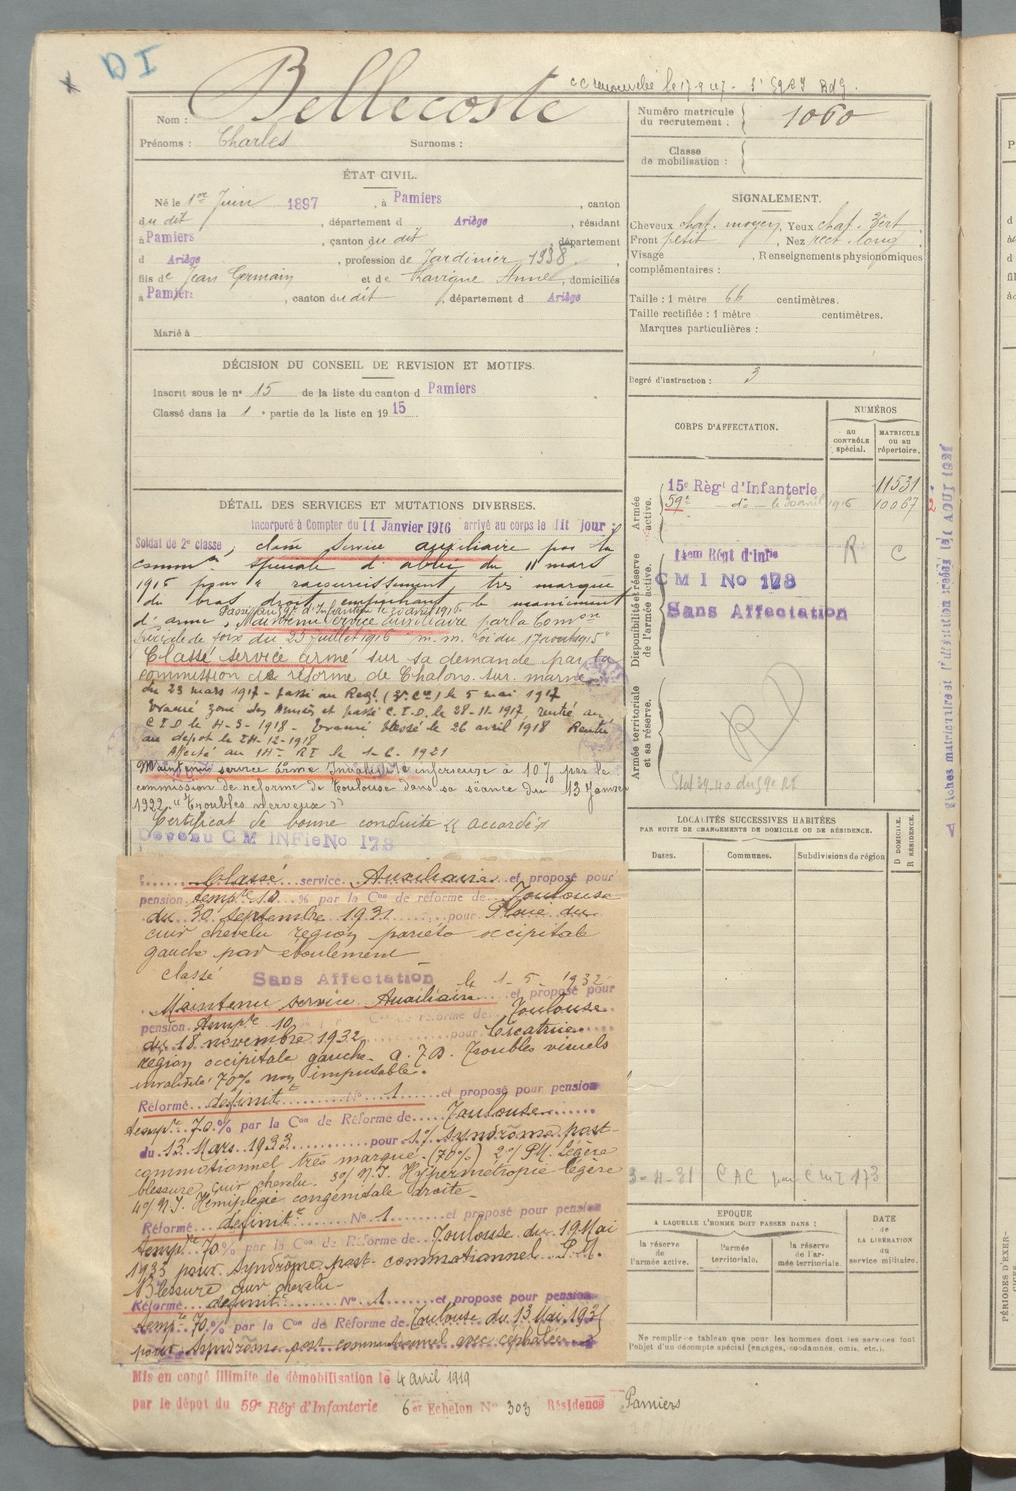 D I
Bellecoste
Nom :
Prénoms : Charles Surnoms :
ÉTAT CIVIL.
Né le 1er Juin 1897, à Pamiers, canton
du dit, département d Ariège, résidant
à Pamiers, canton du dit, département
d Ariège, profession de Jardinier 1938
fils de Jean Germain et de Lavigne Anne, domiciliés
à Pamiers, canton du dit, département d Ariège
Marié à
DÉCISION DU CONSEIL DE REVISION ET MOTIFS.
Inscrit sous le n° 15 de la liste du canton d Pamiers
Classé dans la 1e partie de la liste en 1915
DÉTAIL DES SERVICES ET MUTATIONS DIVERSES.
Incorporé à Compter du 11 Janvier 1916 arrivé au corps le dit jour ;
Soldat de 2e classe, classé service auxiliaire par la
comm on spéciale d' du 11 mars
1916 pour " raccourcissement très marqué
du bras droit empêchant le maniement
d'arme, Passé au 59e d'Infanterie le 30 avril 1916
Maintenu service auxiliaire par la Comon
spéciale de Foix du 23 juillet 1916 Loi du 17 août 1915
Classé service armé sur sa demande par la
commission de réforme de Chalons-sur-marne
du 23 mars 1917 - passé au Regt (3e Cie) le 5 mai 1917
Evacué zone des Armées et passé C.I.D. le 28-11-1917, rentré au
C.I.D. le 11-3-1918 - Evacué blessé le 26 avril 1918 Rentré
au dépôt le 24-12-1918
Affecté au 14e RI le 1-6-1921
Maintenu service armé Invalidité inférieure à 10% par la
commission de réforme de Toulouse dans sa séance du 13 Janvier
1922. "Troubles nerveux"
Certificat de bonne conduite "accordé"
Devenu CM INFie No 178
Classé service Auxiliaire et proposé pour
pension tempre 10 % par la Con de réforme de Toulouse
du 30 Septembre 1931 pour Plaie du
cuir chevelu région pariéto occipitale
gauche par éboulement
Classé Sans Affectation le 1-5-1932
Maintenu service Auxiliaire et proposé pour
pension tempre 10 Con de réforme de Toulouse
du 18 novembre 1932 pour Cicatrice
région occipitale gauche. Troubles visuels
invalidité 70% non imputable.
Réformé définitt N° 1 et proposé pour pension
tempre 70 % par la Con de Réforme de Toulouse
du 13 Mars 1933 pour 1°/ Syndrome post-
commotionnel très marqué (70%) 2°/ P.M. Légère
blessure cuir chevelu. 3°/ N.I. Hypermétropie légère
4°/ N.I. Hémiplégie congénitale droite.
Réformé définitt N° 1 et proposé pour pension
tempre 70 % par la Con de Réforme de Toulouse du 19 Mai
1935 pour Syndrome post-commotionnel P.M.
Blessure cuir chevelu.
Réformé définitt N° 1 et proposé pour pension
tempre 70 % par la Con de Réforme de Toulouse du 13 Mai 193
pour Syndrome post commotionnel avec céphalée
Mis en congé illimité de démobilisation le 4 avril 1919
par le dépôt du 59e Régt d'Infanterie 6er Echelon N° 303 Résidence Pamiers
Numéro matricule
du recrutement : 1060
Classe
de mobilisation :
SIGNALEMENT.
Cheveux chat. moyen, Yeux chat. vert
Front petit, Nez rect. long
Visage, Renseignements physionomiques
complémentaires :
Taille : 1 mètre 66 centimètres.
Taille rectifiée : 1 mètre centimètres.
Marques particulières :
Degré d'instruction : 3
CORPS D'AFFECTATION.
NUMÉROS
AU CONTRÔLE spécial.
MATRICULE OU AU RÉPERTOIRE.
Armée active.
15e Régt d'Infanterie 11531
59e do le 30 avril 1916 10067
Disponibilité et réserve de l'armée active.
14em Régt d'Infie R C
CMI No 178
Sans Affectation
Armée territoriale et sa réserve.
LOCALITÉS SUCCESSIVES HABITÉES
PAR SUITE DE CHANGEMENTS DE DOMICILE OU DE RÉSIDENCE.
D DOMICILE. R RÉSIDENCE.
Dates. Communes. Subdivisions de région
EPOQUE
A LAQUELLE L'HOMME DOIT PASSER DANS :
la réserve de l'armée active.
l'armée territoriale.
la réserve de l'armée territoriale.
DATE de LA LIBÉRATION du service militaire.
Ne remplir ce tableau que pour les hommes dont les services font
l'objet d'un décompte spécial (engagés, condamnés, omis, etc.).
PÉRIODES D'EXER-